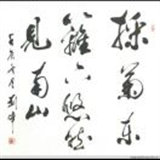 採菊東
籬下悠然
見南山